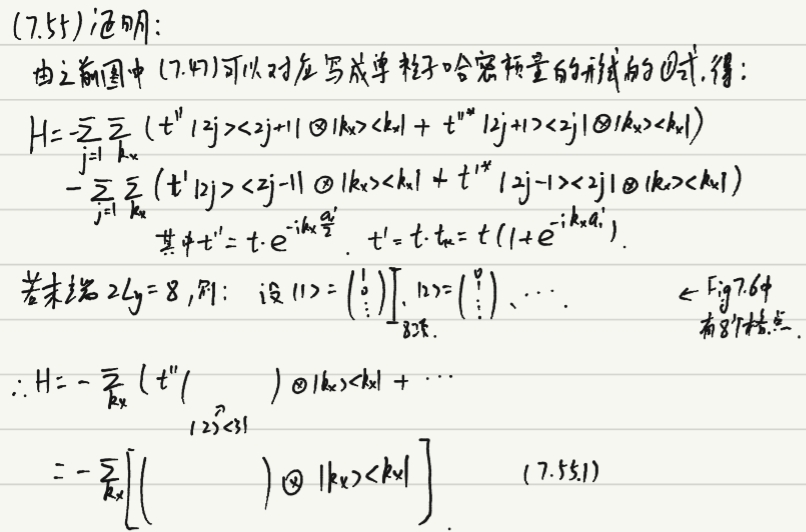 (7.55) 证明:
由之前图中 (7.47) 可以对应写成单粒子哈密顿量的形式的①式, 得:
H = -∑_{j=1} ∑_{kₓ} ( t'' |2j><2j+1| ⊗ |kₓ><kₓ| + t''* |2j+1><2j| ⊗ |kₓ><kₓ| )
- ∑_{j=1} ∑_{kₓ} ( t' |2j><2j-1| ⊗ |kₓ><kₓ| + t'* |2j-1><2j| ⊗ |kₓ><kₓ| )
其中 t'' = t·e^{-ikₓ a₁'/2} . t' = t·tₖ = t(1+e^{-ikₓa₁'}).
若末端 2Ly = 8, 则: 设 |1> = (1 0 ⋮) 8项. , |2> = (0 1 ⋮) 、…. ← Fig7.6中
有8个格点.
∴ H = - ∑_{kₓ} ( t'' ( ) ⊗ |kₓ><kₓ| + …
|2><3|
= - ∑_{kₓ} [ ( ) ⊗ |kₓ><kₓ| ] . (7.55.1)